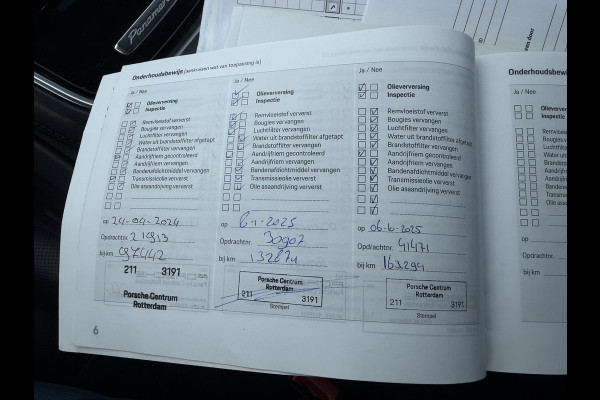 Panamera
Onderhoudsbewijs (aankruisen wat van toepassing is)
Ja / Nee
Olieverversing
Inspectie
Remvloeistof ververst
Bougies vervangen
Luchtfilter vervangen
Water uit brandstoffilter afgetapt
Brandstoffilter vervangen
Aandrijfriem gecontroleerd
Aandrijfriem vervangen
Bandenafdichtmiddel vervangen
Transmissieolie ververst
Olie asaandrijving ververst
op 24-04-2024
Opdrachtnr. 21913
bij km 097442
211 3191
Porsche Centrum
Rotterdam
6
Ja / Nee
Olieverversing
Inspectie
Remvloeistof ververst
Bougies vervangen
Luchtfilter vervangen
Water uit brandstoffilter afgetapt
Brandstoffilter vervangen
Aandrijfriem gecontroleerd
Aandrijfriem vervangen
Bandenafdichtmiddel vervangen
Transmissieolie ververst
Olie asaandrijving ververst
op 6-1-2025
Opdrachtnr.
bij km
Porsche Centrum
Rotterdam
211 3191
Stempel
Ja / Nee
Olieverversing
Inspectie
Remvloeistof ververst
Bougies vervangen
Luchtfilter vervangen
Water uit brandstoffilter afgetapt
Brandstoffilter vervangen
Aandrijfriem gecontroleerd
Aandrijfriem vervangen
Bandenafdichtmiddel vervangen
Transmissieolie ververst
Olie asaandrijving ververst
op 06-6-2025
Opdrachtnr. 41471
bij km 163.294
Porsche Centrum
Rotterdam
211 3191
Stempel
Ja / Nee
op
Opdrachtnr.
bij km